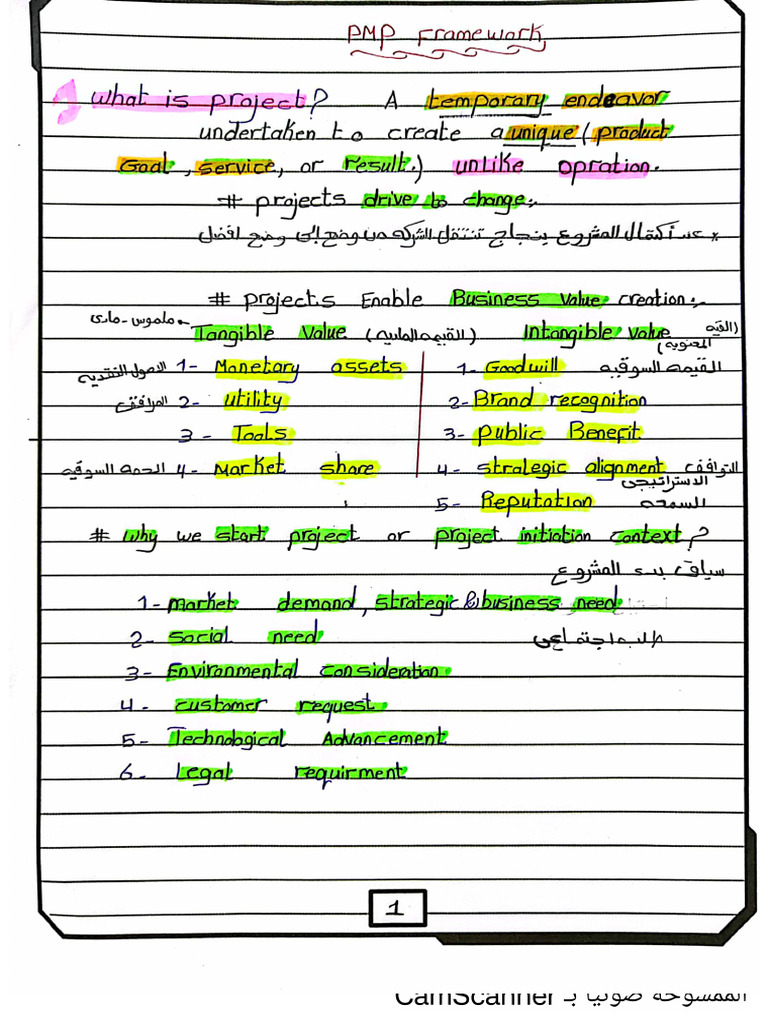 PMP Framework
What is project? A temporary endeavor
undertaken to create a unique (product
Goal, service, or result.) unlike opration.
# projects drive to change:.
* عند أكتمال المشروع بنجاح تنتقل الشركه من وضع إلى وضع افضل
# Projects Enable Business Value creation:.
ملموس - مادى Tangible Value (القيمه الماديه) Intangible Value (القيه المعنويه)
1- Monetary assets الاصول النقديه 1- Goodwill القيمه السوقيه
2- utility المرافق 2- Brand recognition
3- Tools 3- Public Benefit
4- Market share الحصه السوقيه 4- strategic alignment التوافق الاستراتيجى
5- Reputation السمعه
# Why we start project or project initiation context?
سياق بدء المشروع
1- market demand, strategic & business need
2- Social need طلب اجتماعى
3- Environmental consideration
4- customer request
5- Technological Advancement
6- Legal requirment
1
الممسوحة ضوئيا بـ CamScanner